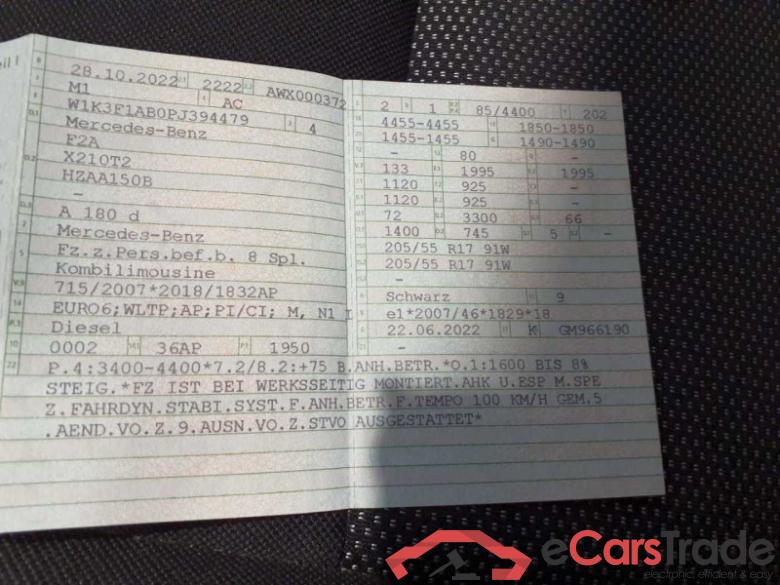 28.10.2022 2222 AWX000372
M1 AC
W1K3F1AB0PJ394479 4
Mercedes-Benz
F2A
X210T2
HZAA150B
–
A 180 d
Mercedes-Benz
Fz.z.Pers.bef.b. 8 Spl.
Kombilimousine
715/2007*2018/1832AP
EURO6;WLTP;AP;PI/CI; M, N1 I
Diesel
0002 36AP 1950
2 1 85/4400 202
4455-4455 1850-1850
1455-1455 1490-1490
– 80 –
133 1995 1995
1120 925 –
1120 925 –
72 3300 66
1400 745 5 –
205/55 R17 91W
205/55 R17 91W
–
Schwarz 9
e1*2007/46*1829*18
22.06.2022 K GM966190
–
P.4:3400-4400*7.2/8.2:+75 B.ANH.BETR.*O.1:1600 BIS 8%
STEIG.*FZ IST BEI WERKSSEITIG MONTIERT.AHK U.ESP M.SPE
Z.FAHRDYN.STABI.SYST.F.ANH.BETR.F.TEMPO 100 KM/H GEM.5
.AEND.VO.Z.9.AUSN.VO.Z.STVO AUSGESTATTET*
eCarsTrade
electronic, efficient & easy